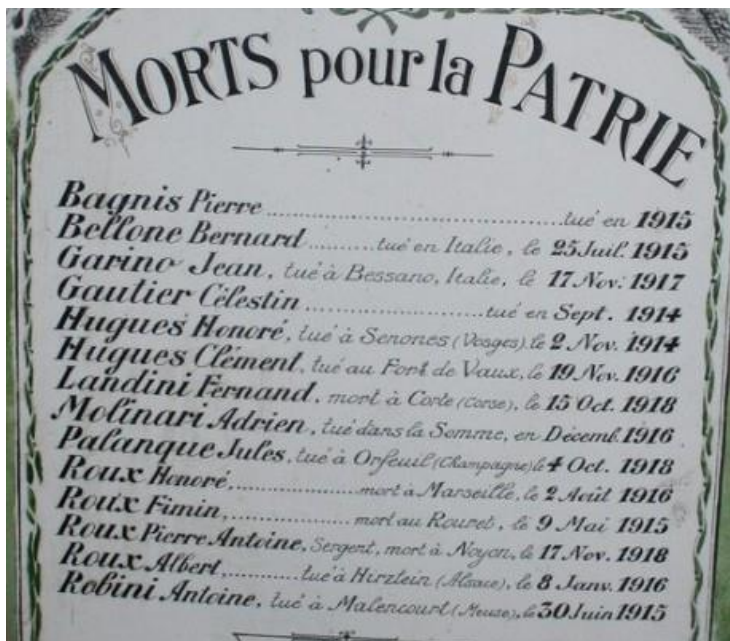 MORTS pour la PATRIE
Bagnis Pierre ............................................. tué en 1915
Bellone Bernard .......... tué en Italie, le 25 Juil. 1915
Garino Jean, tué à Bessano, Italie, le 17 Nov. 1917
Gautier Célestin .......................... tué en Sept. 1914
Hugues Honoré, tué à Senones (Vosges), le 2 Nov. 1914
Hugues Clément, tué au Fort de Vaux, le 19 Nov. 1916
Landini Fernand, mort à Corte (Corse), le 15 Oct. 1918
Molinari Adrien, tué dans la Somme, en Décemb. 1916
Palanque Jules, tué à Orfeuil (Champagne) le 4 Oct. 1918
Roux Honoré, .................... mort à Marseille, le 2 Août 1916
Roux Fimin, .................... mort au Rouret, le 9 Mai 1915
Roux Pierre Antoine, Sergent, mort à Noyon, le 17 Nov. 1918
Roux Albert, ............ tué à Hirztein (Alsace), le 8 Janv. 1916
Robini Antoine, tué à Malencourt (Meuse), le 30 Juin 1915